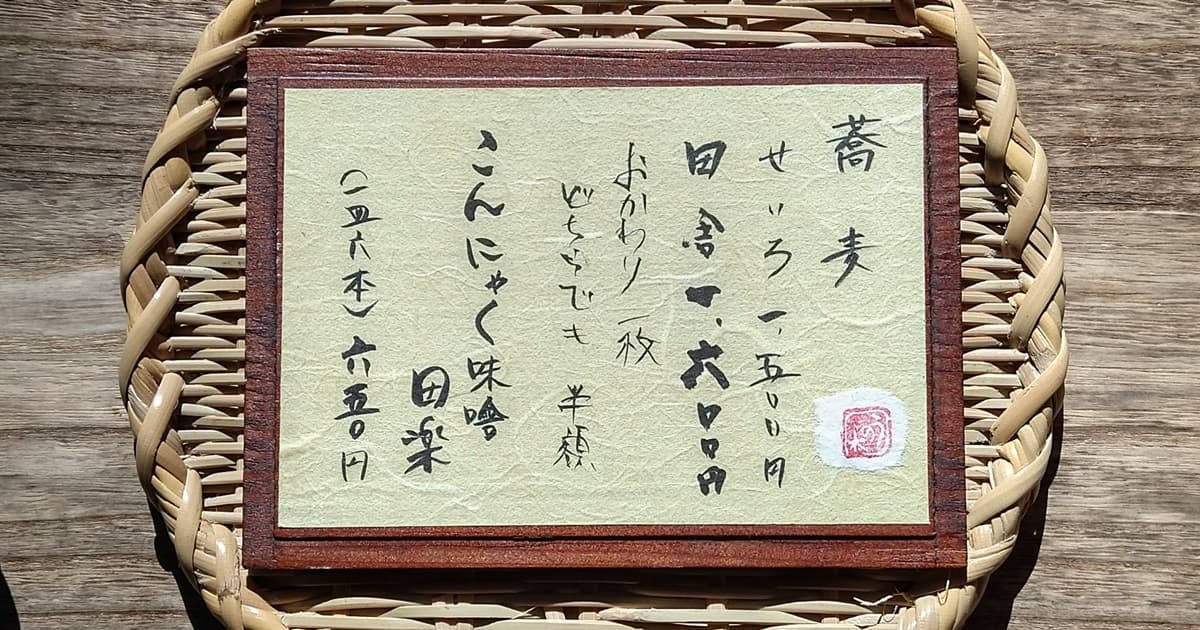 蕎麦
せいろ 一、五〇〇円
田舎 一、六〇〇円
おかわり一枚
どちらでも 半額
こんにゃく味噌
田楽
(一皿六本) 六五〇円